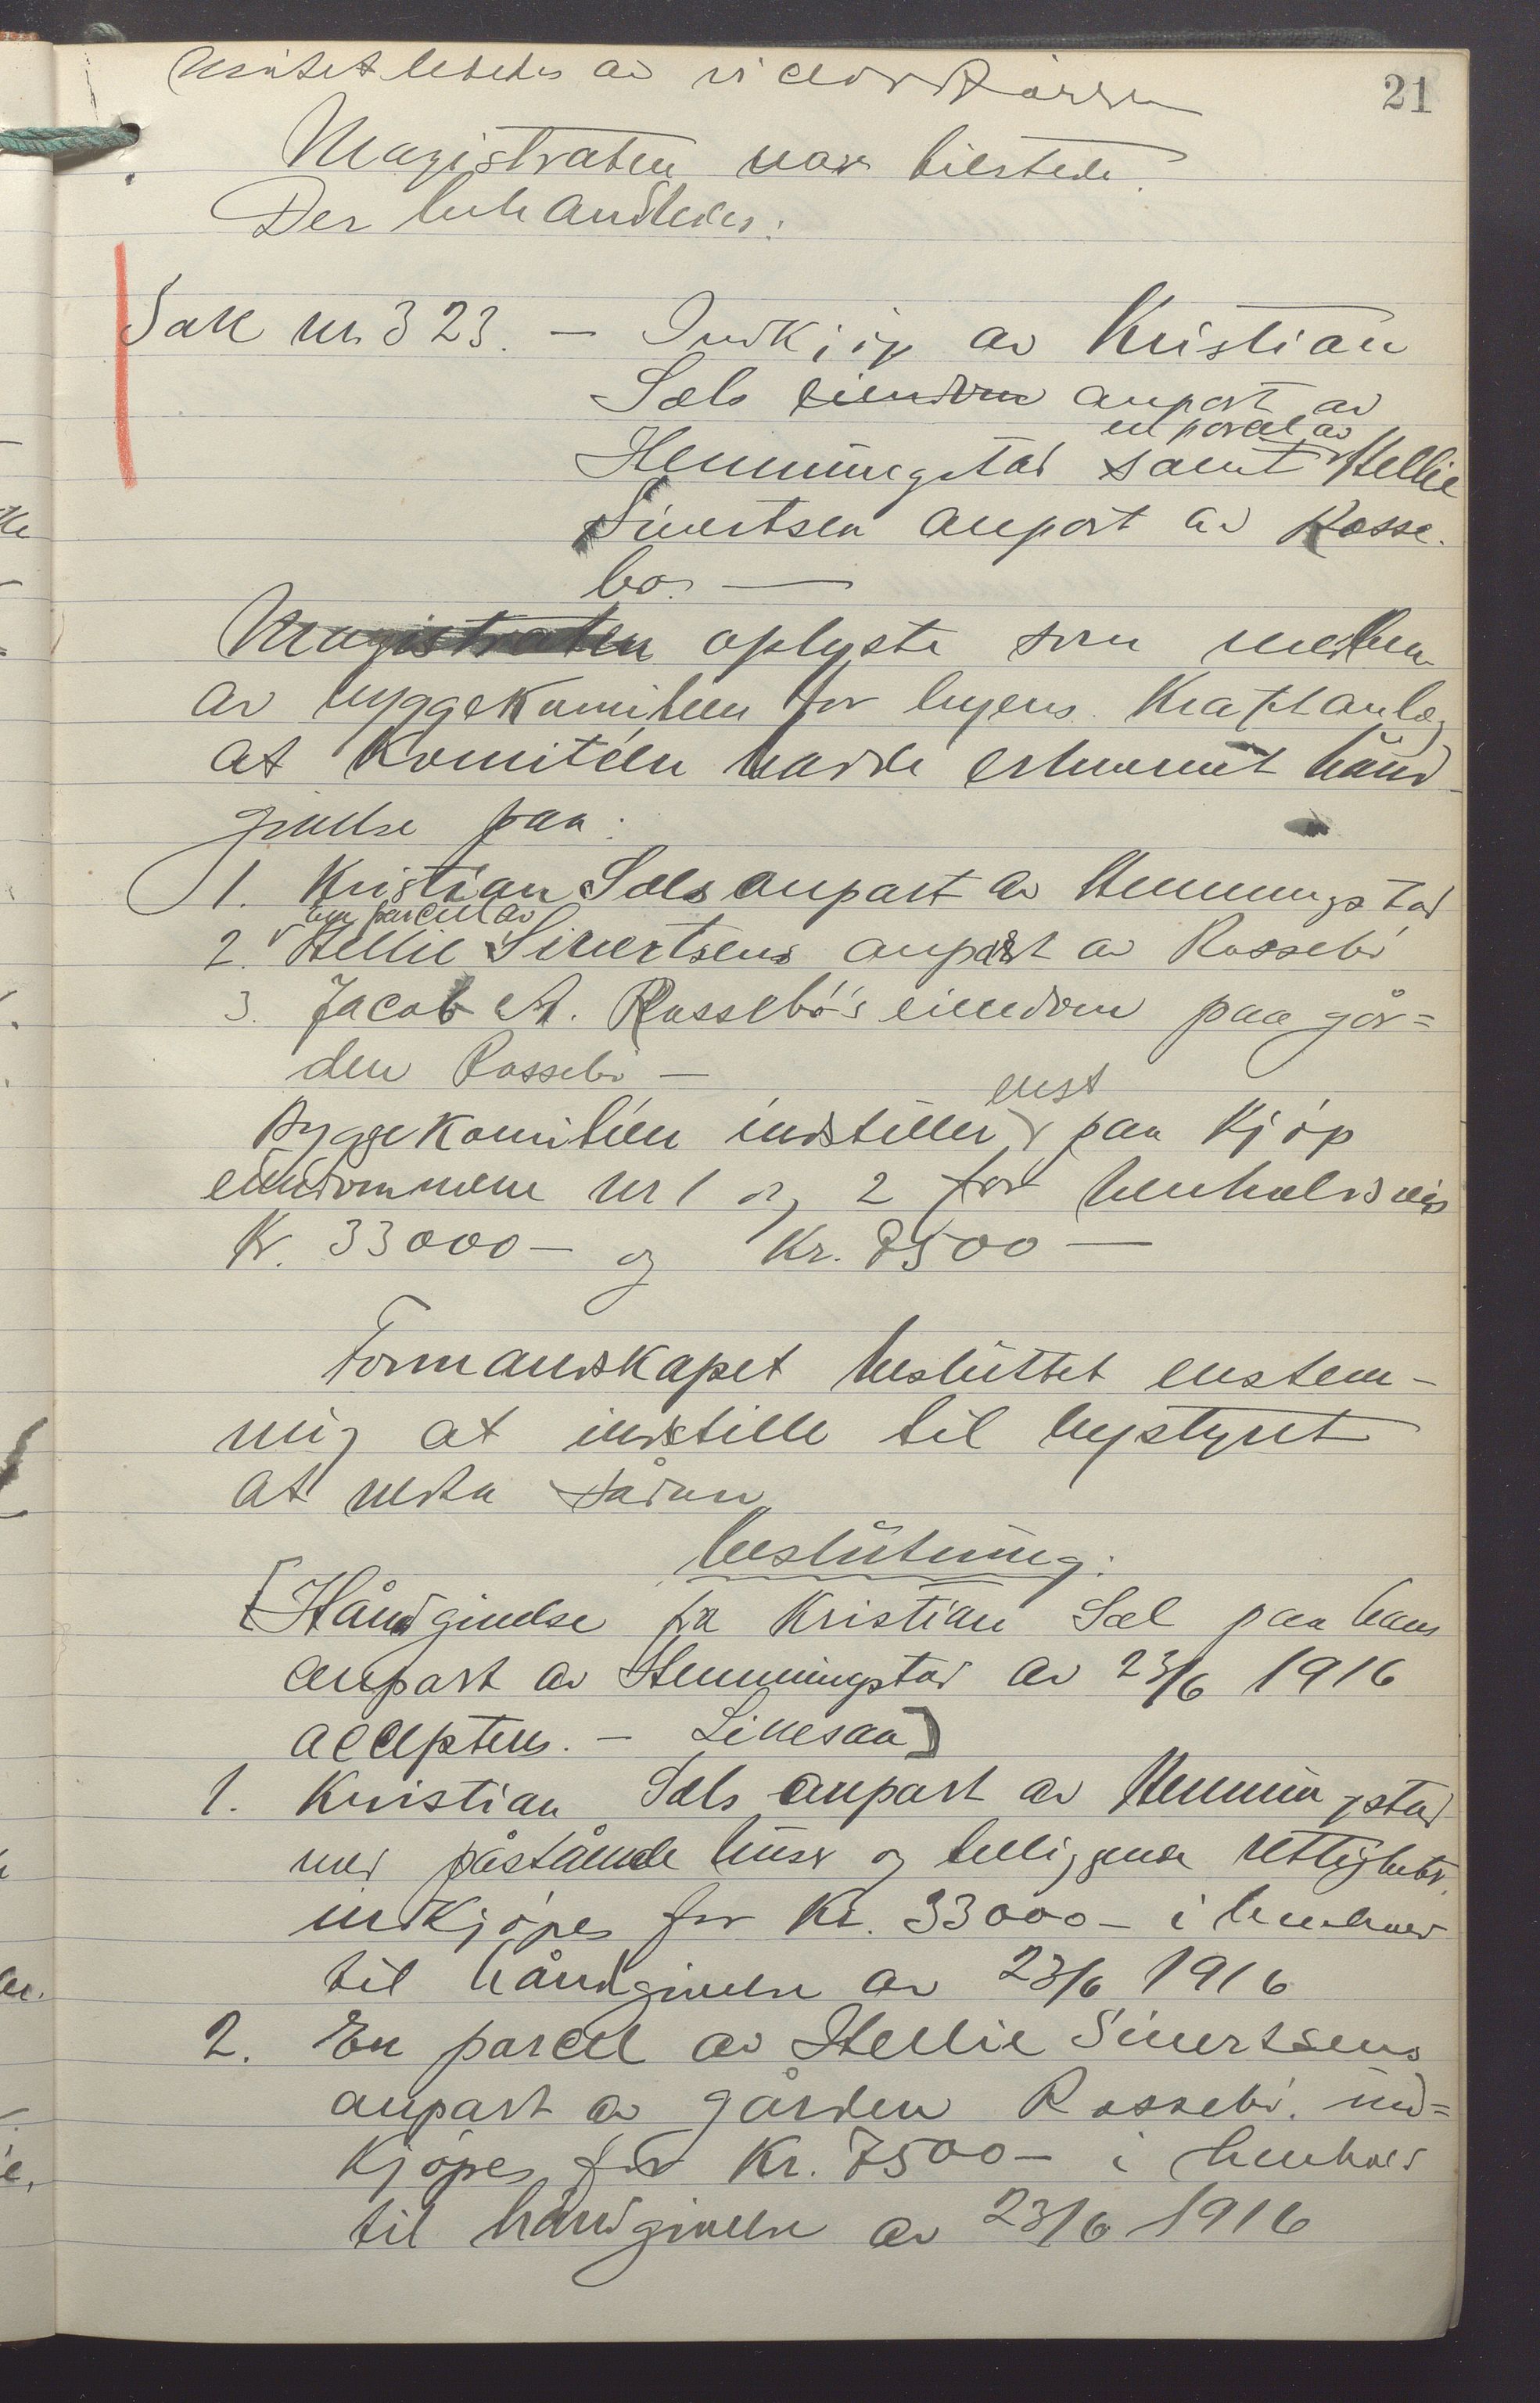 Møtet lededes av viceordføreren
21
Magistraten var tilstede.
Der behandledes:
Sak nr. 323. – Indkjøp av Kristian
Sæls eiendom anpart av
en parcel av
Hemmingstad samt Hellie
Sivertsen anpart av Rosse-
bø. —
Magistraten oplyste som medlem
av byggekomiteen for byens kraftanlæg
at komitéen hadde erhvervet hånd-
givelse paa:
1. Kristian Sæls anpart av Hemmingstad
En parcel av
2. Hellie Sivertsens anpart av Rossebø
3. Jacob A. Rossebø's eiendom paa går=
den Rossebø —
enst
Byggekomitéen indstiller paa kjøp
eiendommene nr 1 og 2 for henholdsvis
Kr. 33000 – og Kr. 7500 —
Formandskapet besluttet enstem-
mig at indstille til bystyret
at vedta sådan
beslutning:
[Håndgivelse fra Kristian Sæl paa hans
anpart av Hemmingstad av 23/6 1916
accepteres. – Likesaa]
1. Kristian Sæls anpart av Hemmingstad
med påstående huser og tilliggende rettigheter
indkjøpes for Kr. 33000 – i henhold
til håndgivelse av 23/6 1916
2. En parcel av Hellie Sivertsens
anpart av gården Rossebø ind=
kjøpes for Kr. 7500 – i henhold
til håndgivelse av 23/6 1916